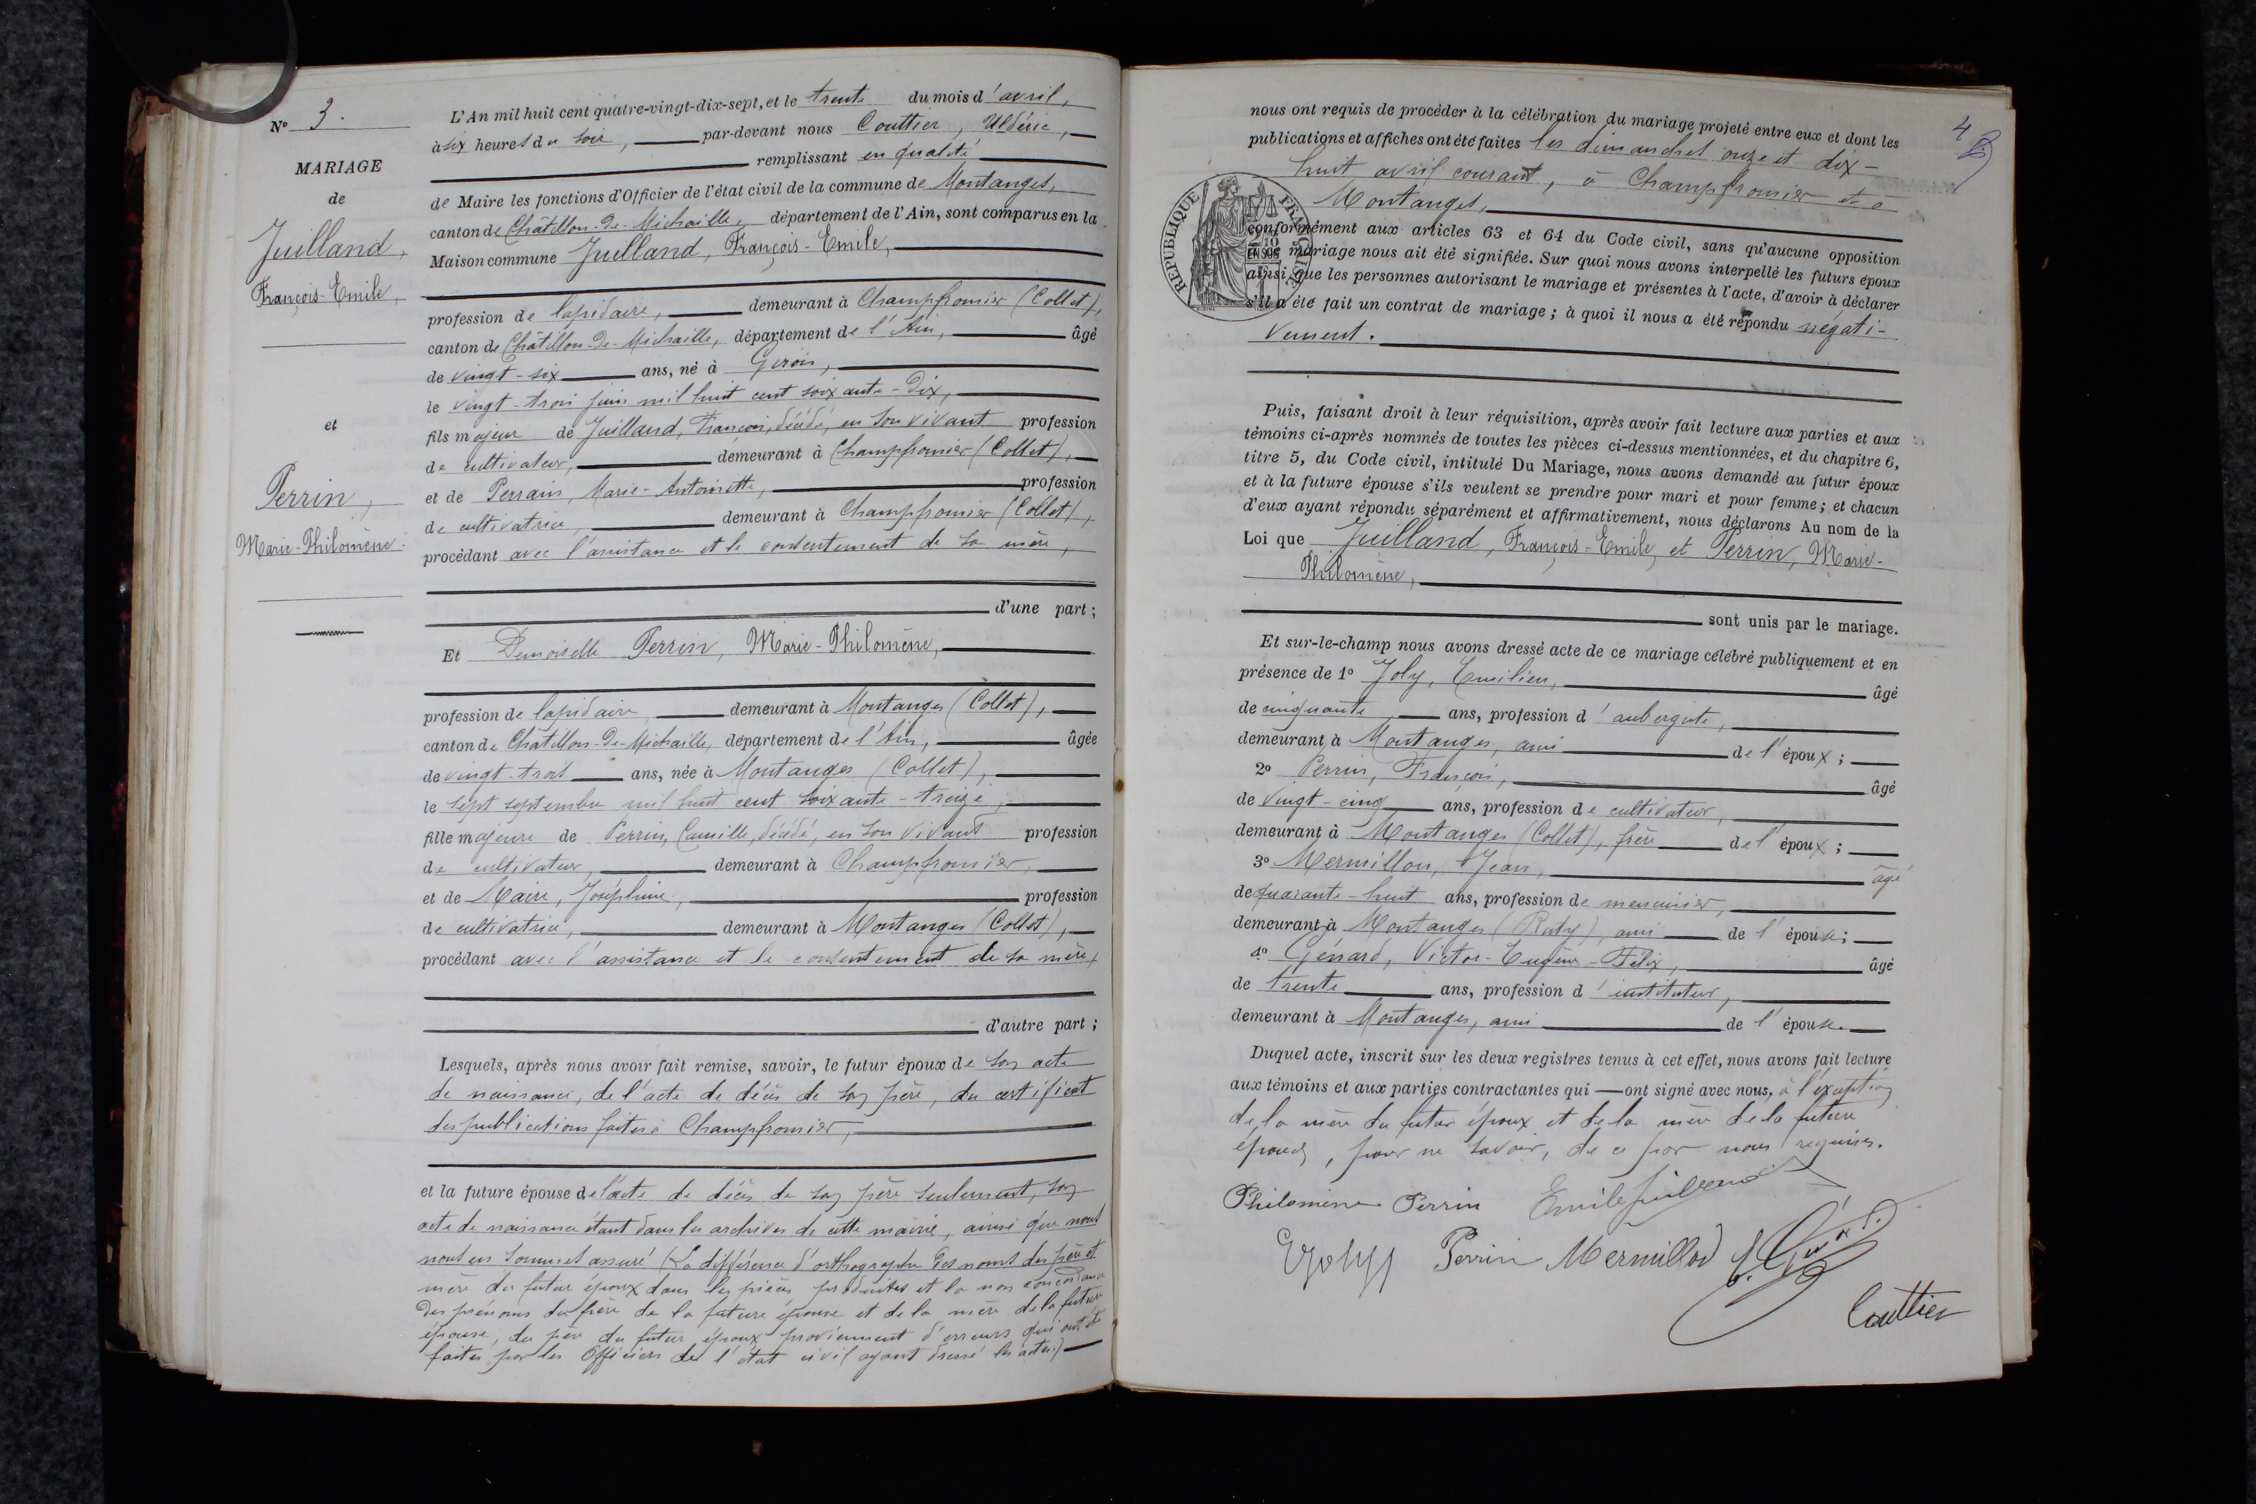 N° 3.
MARIAGE
de
Juilland,
François-Emile,
et
Perrin,
Marie-Philomène.
L'An mil huit cent quatre-vingt-dix-sept, et le trente du mois d'avril,
à six heures du soir, par-devant nous Couttier, Uldéric,
remplissant en qualité
de Maire les fonctions d'Officier de l'état civil de la commune de Montanges,
canton de Châtillon-de-Michaille, département de l'Ain, sont comparus en la
Maison commune Juilland, François-Emile,
profession de lapidaire, demeurant à Champfromier (Collet),
canton de Châtillon-de-Michaille, département de l'Ain, âgé
de vingt-six ans, né à Giron,
le vingt-trois juin mil huit cent soixante-dix,
fils majeur de Juilland, François, décédé, en son vivant profession
de cultivateur, demeurant à Champfromier (Collet),
et de Perrain, Marie-Antoinette, profession
de cultivatrice, demeurant à Champfromier (Collet),
procédant avec l'assistance et le consentement de sa mère,
d'une part;
Et Demoiselle Perrin, Marie-Philomène,
profession de lapidaire demeurant à Montanges (Collet),
canton de Châtillon-de-Michaille, département de l'Ain, âgée
de vingt-trois ans, née à Montanges (Collet),
le sept septembre mil huit cent soixante-treize,
fille majeure de Perrin, Camille, décédé, en son vivant profession
de cultivateur, demeurant à Champfromier,
et de Maire, Joséphine, profession
de cultivatrice, demeurant à Montanges (Collet),
procédant avec l'assistance et le consentement de sa mère,
d'autre part;
Lesquels, après nous avoir fait remise, savoir, le futur époux de son acte
de naissance, de l'acte de décès de son père, du certificat
des publications faites à Champfromier,
et la future épouse de l'acte de décès de son père seulement, son
acte de naissance étant dans les archives de cette mairie, ainsi que nous
nous en sommes assuré (La différence d'orthographe des noms des père et
mère du futur époux dans les pièces produites et la non concordance
des prénoms du père de la future épouse et de la mère de la future
épouse, du père du futur époux proviennent d'erreurs qui ont été
faites par les Officiers de l'état civil ayant dressé les actes)
4
nous ont requis de procéder à la célébration du mariage projeté entre eux et dont les
publications et affiches ont été faites les dimanches onze et dix-
huit avril courant, à Champfromier et à
Montanges,
RÉPUBLIQUE FRANÇAISE
conformément aux articles 63 et 64 du Code civil, sans qu'aucune opposition
au mariage nous ait été signifiée. Sur quoi nous avons interpellé les futurs époux
ainsi que les personnes autorisant le mariage et présentes à l'acte, d'avoir à déclarer
s'il a été fait un contrat de mariage; à quoi il nous a été répondu négati-
vement.
Puis, faisant droit à leur réquisition, après avoir fait lecture aux parties et aux
témoins ci-après nommés de toutes les pièces ci-dessus mentionnées, et du chapitre 6,
titre 5, du Code civil, intitulé Du Mariage, nous avons demandé au futur époux
et à la future épouse s'ils veulent se prendre pour mari et pour femme; et chacun
d'eux ayant répondu séparément et affirmativement, nous déclarons Au nom de la
Loi que Juilland, François-Emile, et Perrin, Marie-
Philomène,
sont unis par le mariage.
Et sur-le-champ nous avons dressé acte de ce mariage célébré publiquement et en
présence de 1° Joly, Emilien, âgé
de cinquante ans, profession d'aubergiste,
demeurant à Montanges, ami de l'époux;
2° Perrin, François, âgé
de vingt-cinq ans, profession de cultivateur,
demeurant à Montanges (Collet), frère de l'époux;
3° Mermillon, Jean, âgé
de quarante-huit ans, profession de menuisier,
demeurant à Montanges (Ruty), ami de l'épouse;
4° Génard, Victor-Eugène-Félix, âgé
de trente ans, profession d'instituteur,
demeurant à Montanges, ami de l'épouse.
Duquel acte, inscrit sur les deux registres tenus à cet effet, nous avons fait lecture
aux témoins et aux parties contractantes qui — ont signé avec nous, à l'exception
de la mère du futur époux et de la mère de la future
épouse, pour ne savoir, de ce par nous requises.
Philomène Perrin Emile Juilland
E Joly Perrin Mermillod
Couttier